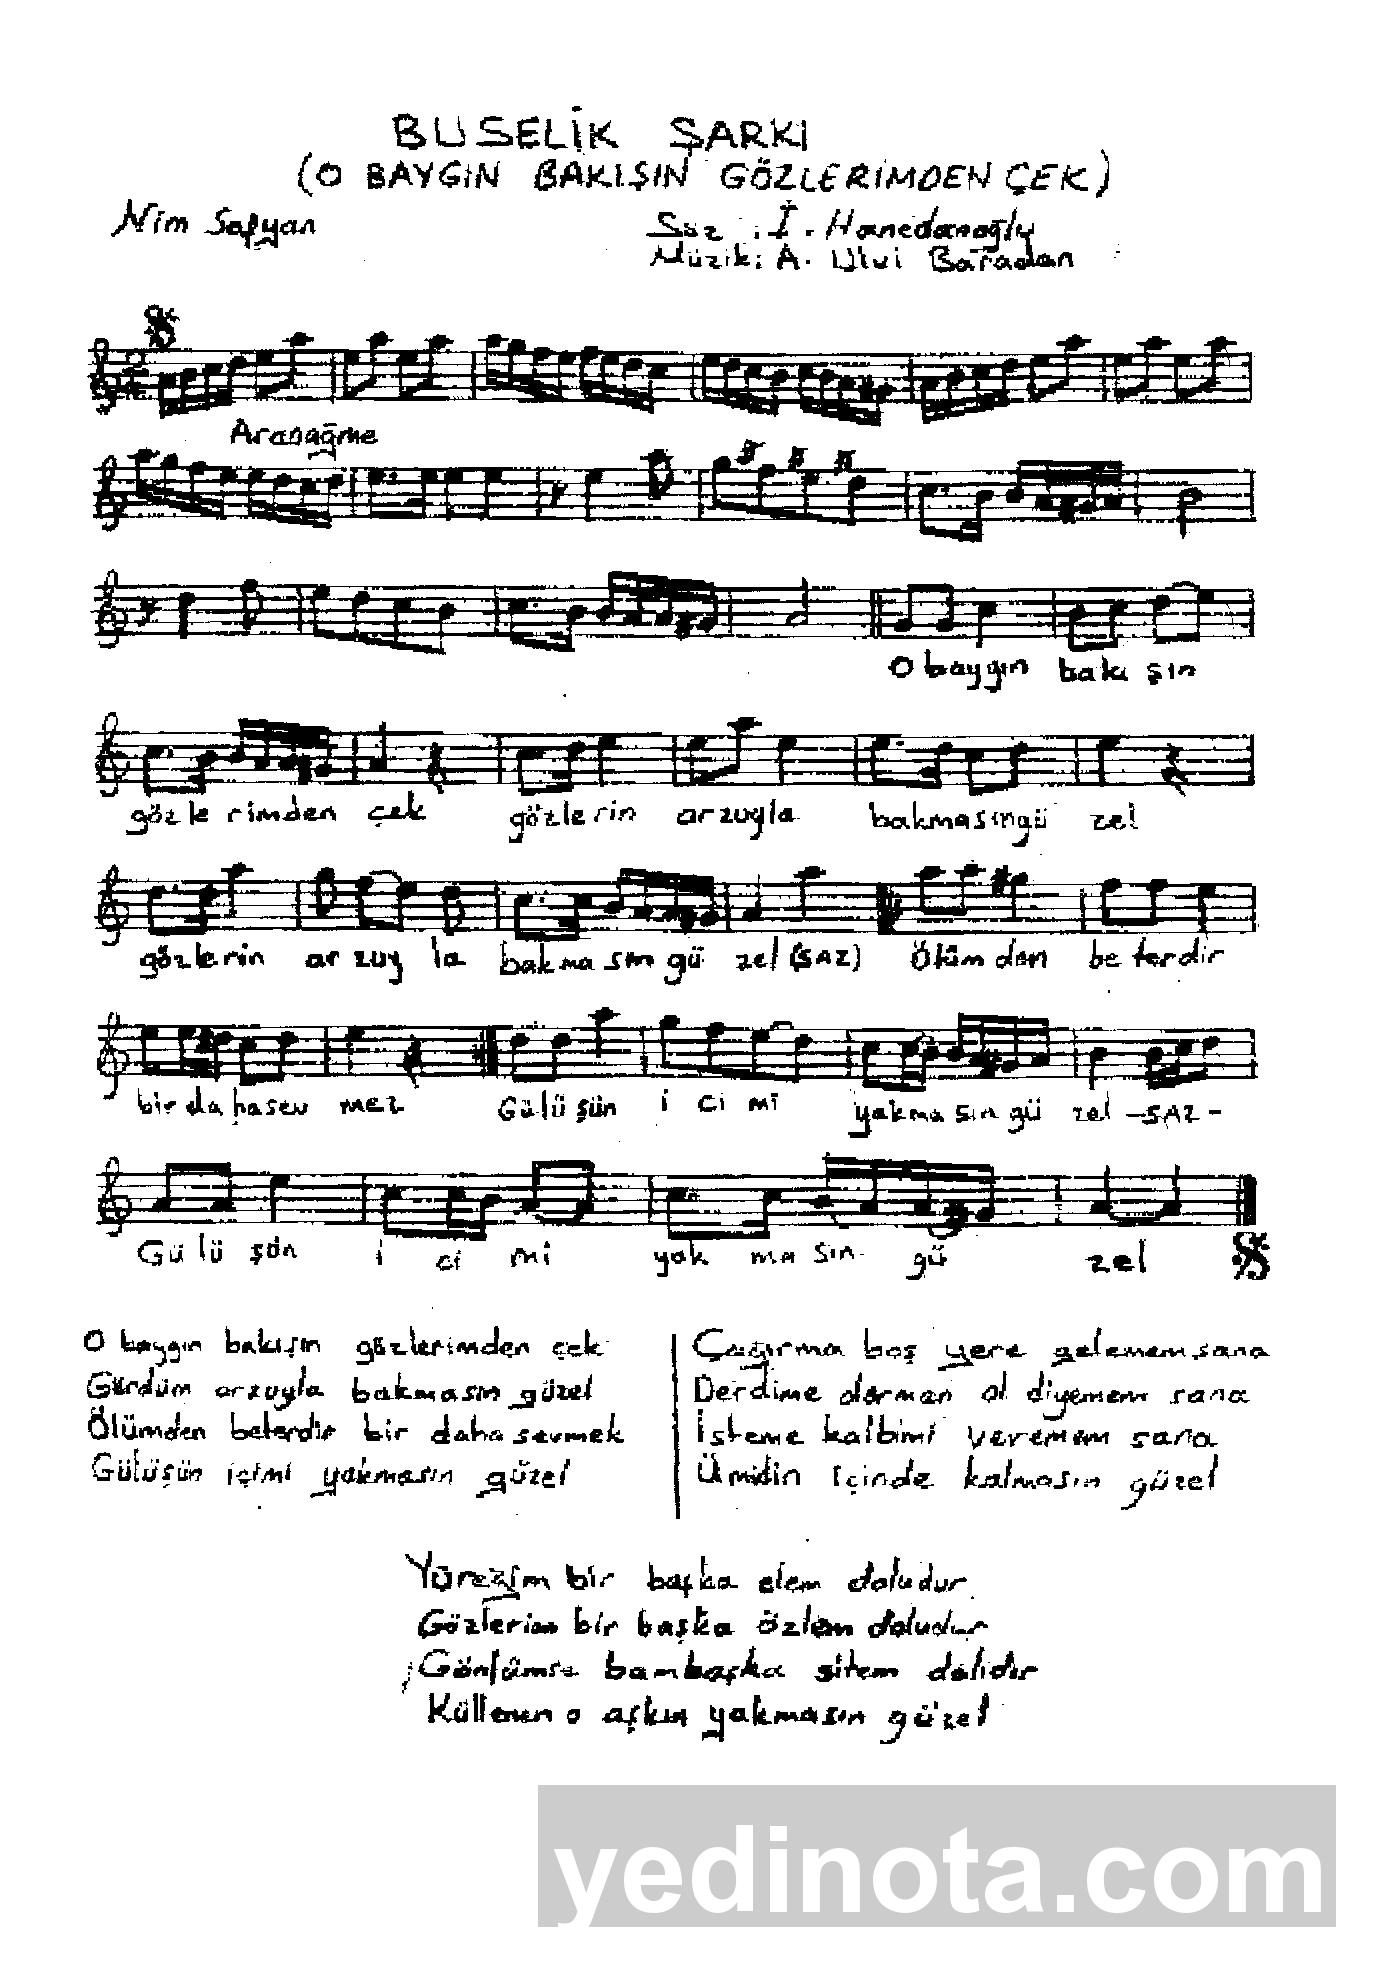 BUSELİK ŞARKI
(O BAYGIN BAKIŞIN GÖZLERİMDEN ÇEK)
Nim Sofyan
Söz : İ. Hanedanoğlu
Müzik: A. Ulvi Baradan
Aranağme
O baygın bakı şın
gözle rimden çek gözlerin arzuyla bakmasıngü zel
gözlerin arzuy la bakma sın gü zel (SAZ) Ölüm den be terdir
bir da hasev mez Gülü şün i ci mi yakma sın gü zel -SAZ-
Gü lü şün i ci mi yak ma sın- gü zel
O baygın bakışın gözlerimden çek
Gurdüm arzuyla bakmasın güzel
Ölümden beterdir bir daha sevmek
Gülüşün içimi yakmasın güzel
Çağırma boş yere gelemem sana
Derdime derman ol diyemem sana
İsteme kalbimi veremem sana
Ümidin içinde kalmasın güzel
Yüreğim bir başka elem doludur
Gözlerim bir başka özlem doludur
Gönlümse bambaşka sitem dolidir
Küllenen o aşkın yakmasın güzel
yedinota.com